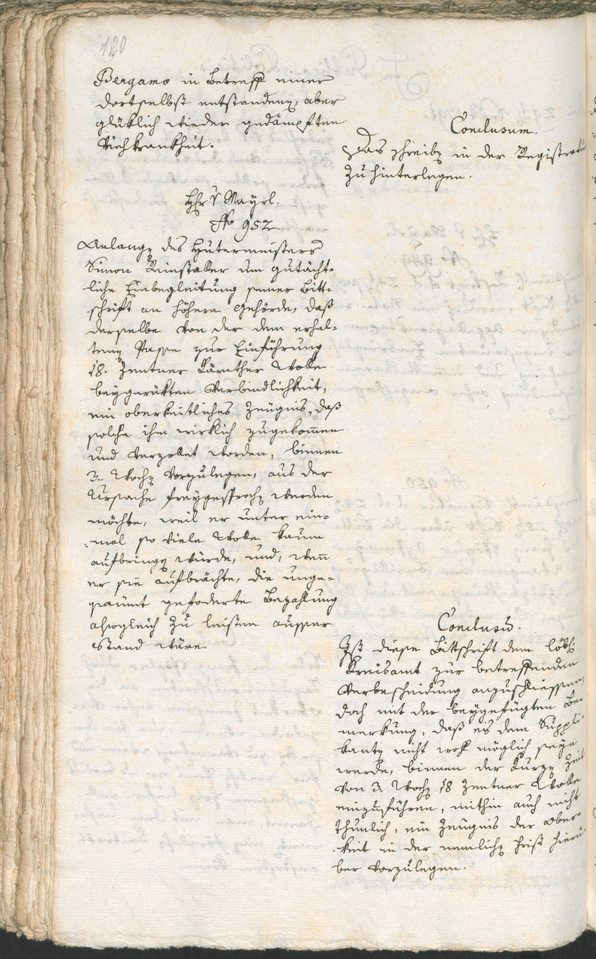 120
Bergamo in Betreff einer
dortselbst entstandenen, aber
glücklich wieder gedämpften
Viehkrankheit.
Conclusum.
Das Schreiben in der Registratur
zu hinterlegen.
Hr. v Mayrl.
No 952
Anlangen des Hutermeisters
Simon Rainstaler um gutächt-
liche Einbegleitung seiner Bitt-
schrift an höhere Gehörde, daß
derselbe von der dem erhal-
tenen Passe zur Einführung
18. Zentner Kärnther Wolle
beygerükten Verbindlichkeit,
ein oberkeitliches Zeügnis, daß
solche ihm wirklich zugekommen
und verzolet worden, binnen
3. Wochen vorzulegen, aus der
Ursache freygesprochen werden
möchte, weil er unter ein-
mal so viele Wolle kaum
aufbringen würde, und, wenn
er sie aufbrächte, die unge-
säumt geforderte Bezahlung
alsogleich zu leisten ausser
Stand wäre.
Conclusum.
Ist diese Bittschrift dem löbl.
Kreisamt zur betreffenden
Verbescheidung anzuschliessen,
doch mit der beygefügten Be-
merkung, daß es dem Suppli-
kanten nicht wol möglich seyn
werde, binnen der kurzen Zeit
von 3. Wochen 18 Zentner Wolle
einzuführen, mithin auch nicht
thunlich, ein Zeügnis der Ober-
keit in der nemlichen Frist hierü-
ber vorzulegen.